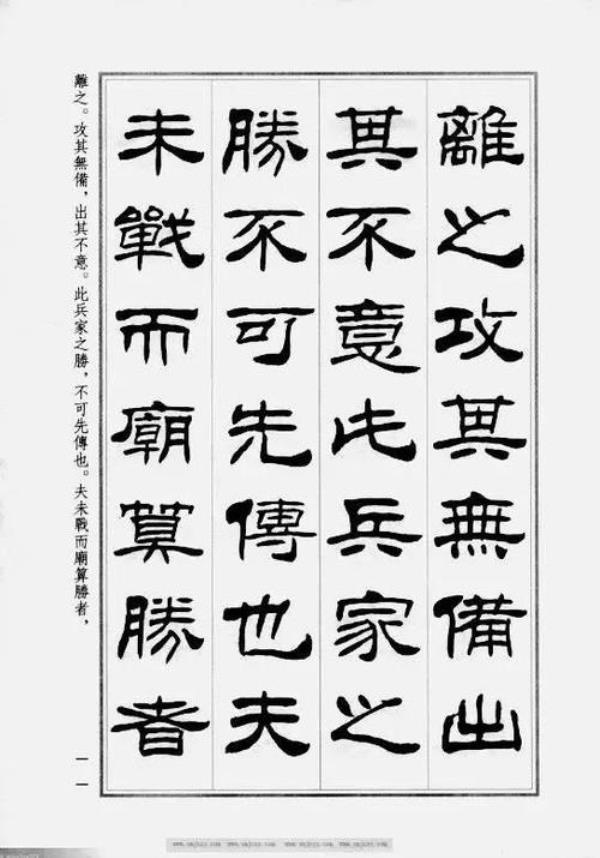 離之攻其無備出
其不意此兵家之
勝不可先傳也夫
未戰而廟算勝者
離之。攻其無備，出其不意。此兵家之勝，不可先傳也。夫未戰而廟算勝者，
一一